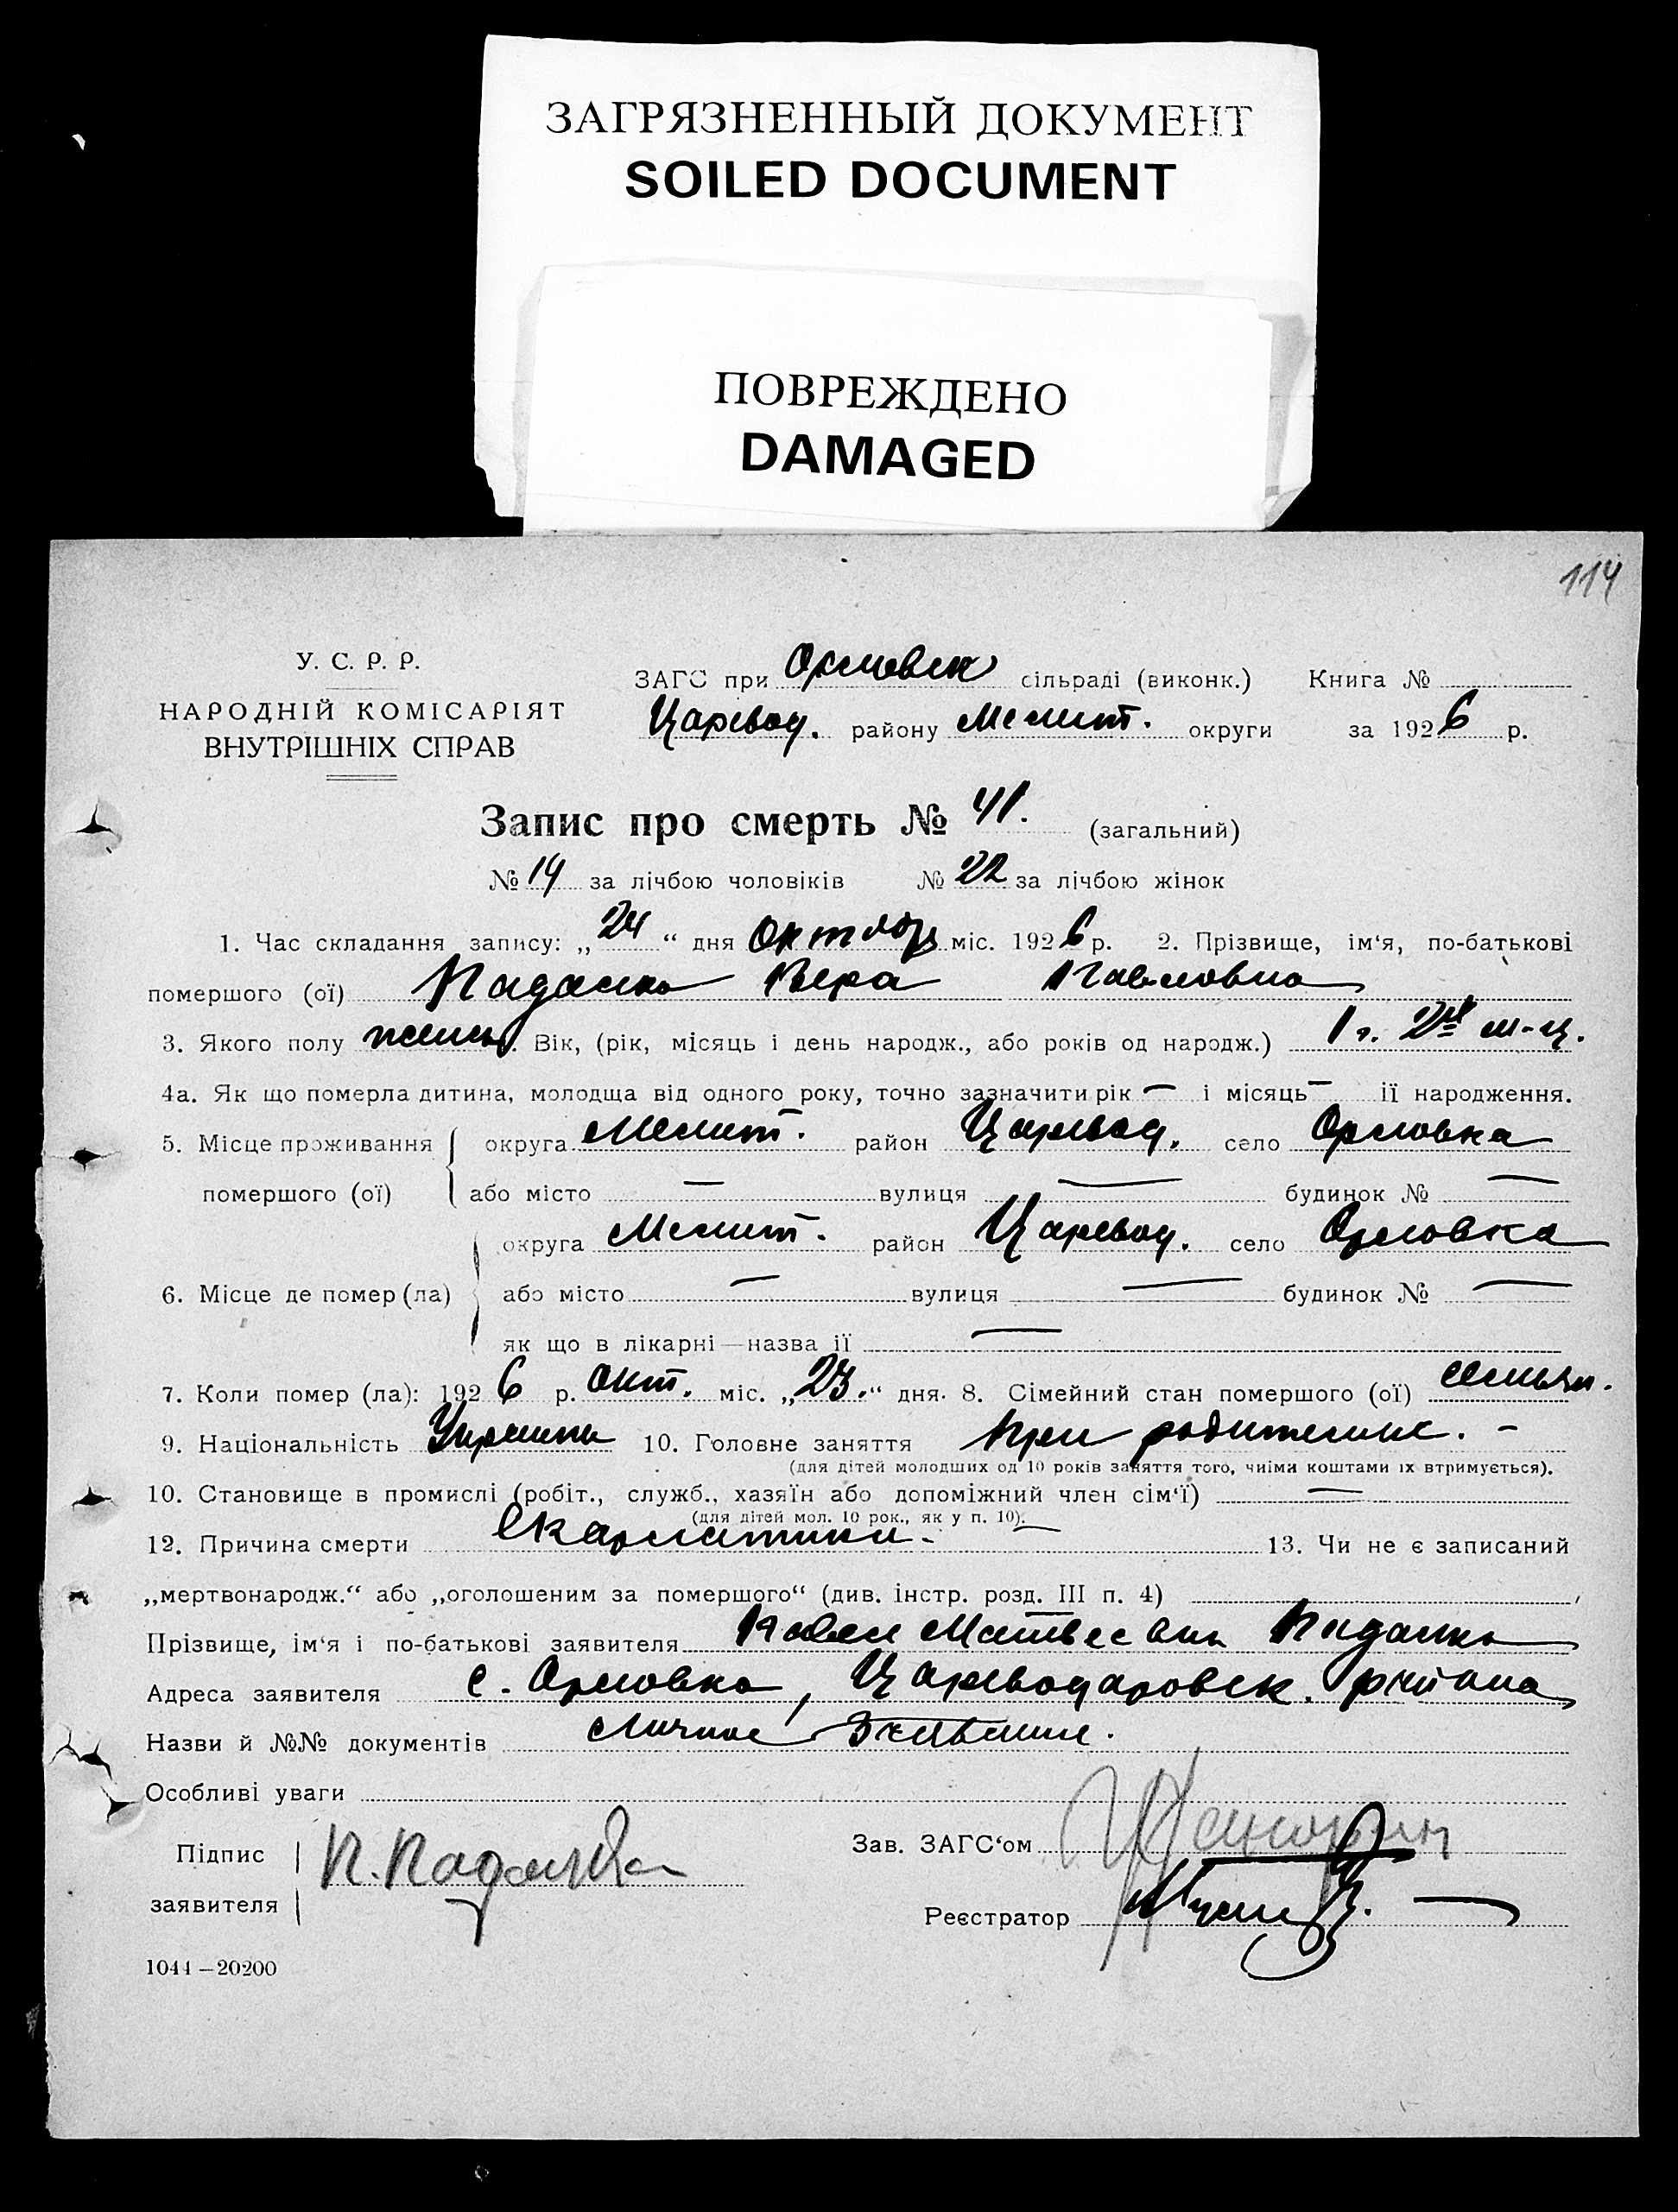 ЗАГРЯЗНЕННЫЙ ДОКУМЕНТ
SOILED DOCUMENT
ПОВРЕЖДЕНО
DAMAGED
114
У. С. Р. Р.
НАРОДНІЙ КОМІСАРІЯТ
ВНУТРІШНІХ СПРАВ
ЗАГС при Орловск сільраді (виконк.) Книга №
Царевод. району Мелит. округи за 1926 р.
Запис про смерть № 41. (загальний)
№ 19 за лічбою чоловіків № 22 за лічбою жінок
1. Час складання запису: „24“ дня Октября міс. 1926 р. 2. Прізвище, ім'я, по-батькові
помершого (ої) Падалка Вера Павловна
3. Якого полу женск. Вік, (рік, місяць і день народж., або років од народж.) 1 г. 2 м-ц.
4а. Як що померла дитина, молодша від одного року, точно зазначити рік — і місяць — її народження.
5. Місце проживання округа Мелит. район Царевод. село Орловка
помершого (ої) або місто — вулиця — будинок № —
округа Мелит. район Царевод. село Орловка
6. Місце де помер (ла) або місто — вулиця — будинок № —
як що в лікарні—назва її —
7. Коли помер (ла): 1926 р. Окт. міс. „23.“ дня. 8. Сімейний стан помершого (ої)
9. Національність 10. Головне заняття При родителях. -
(для дітей молодших од 10 років заняття того, чиїми коштами їх втримується).
10. Становище в промислі (робіт., служб., хазяїн або допоміжний член сім'ї) —
(для дітей мол. 10 рок., як у п. 10).
12. Причина смерти Скарлатина 13. Чи не є записаний
„мертвонародж.“ або „оголошеним за помершого“ (див. інстр. розд. III п. 4)
Прізвище, ім'я і по-батькові заявителя Павел Матвеевич Падалка
Адреса заявителя с. Орловка, Цареводаровск. района
Назви й №№ документів Личное заявление.
Особливі уваги
Підпис заявителя П. Падалка
Зав. ЗАГС'ом
Реєстратор
1044—20200